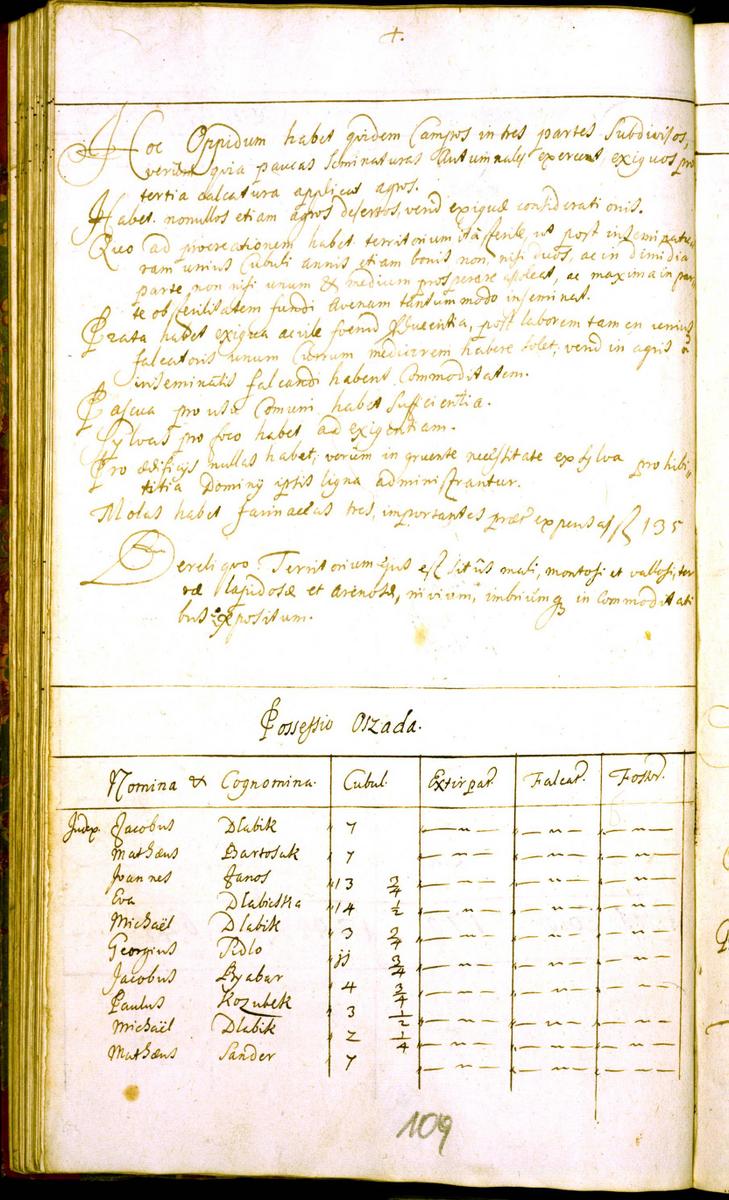 +.
Hoc Oppidum habet quidem Campos in tres partes Subdivisos,
verum quia paucas Seminaturas Autumnales exercent exiguos pro
tertia calcatura applicat agros.
Habet nonnullos etiam agros desertos, verũ exiguæ considerationis.
Quo ad procreationem habet territorium ità sterile, ut post inseminatu-
ram unius Cubuli annis etiam bonis non nisi duos, ac in dimidia
parte non nisi unum & medium prosperare soleat, ac maxima in par-
te ob sterilitatem fundi Avenam tantummodo inseminat.
Prata habet exigua ac vile foenum
falcatoris unum Currum mediocrem habere solet, verũ in agris
inseminatis falcandi habent Commoditatem.
Pascua pro usu Comuni habet Sufficientia.
Sylvas pro foco habet ad exigentiam.
Pro ædificijs nullas habet; verum ingruente necessitate ex sylva prohibi-
titia Dominij ipsis ligna administrantur.
Molas habet farinaceas tres, importantes præt expensas fl 135
De reliquo Territorium ejus est sitûs mali, montosi et vallosi, ter
ræ lapidosæ et arenosæ, nivium, imbriumq in Commoditati
bus expositum.
Possessio Oszada.
Nomina & Cognomina. Cubul. Extirpat. Falcat. Fossor.
Judex. Jacobus Dlabik 7 — „ — — „ — — „ —
Mathæus Bartosak 7 — „ — — „ — — „ —
Joannes Janos 13 3/4 — „ — — „ — — „ —
Eva Dlabicska 14 1/2 — „ — — „ — — „ —
Michaël Dlabik 3 3/4 — „ — — „ — — „ —
Georgius Pidlo jj 3/4 — „ — — „ — — „ —
Jacobus Ryabar 4 3/4 — „ — — „ — — „ —
Paulus Kozubek 3 1/2 — „ — — „ — — „ —
Michaël Dlabik 2 1/4 — „ — — „ — — „ —
Mathæus Sander 7 — „ — — „ — — „ —
109